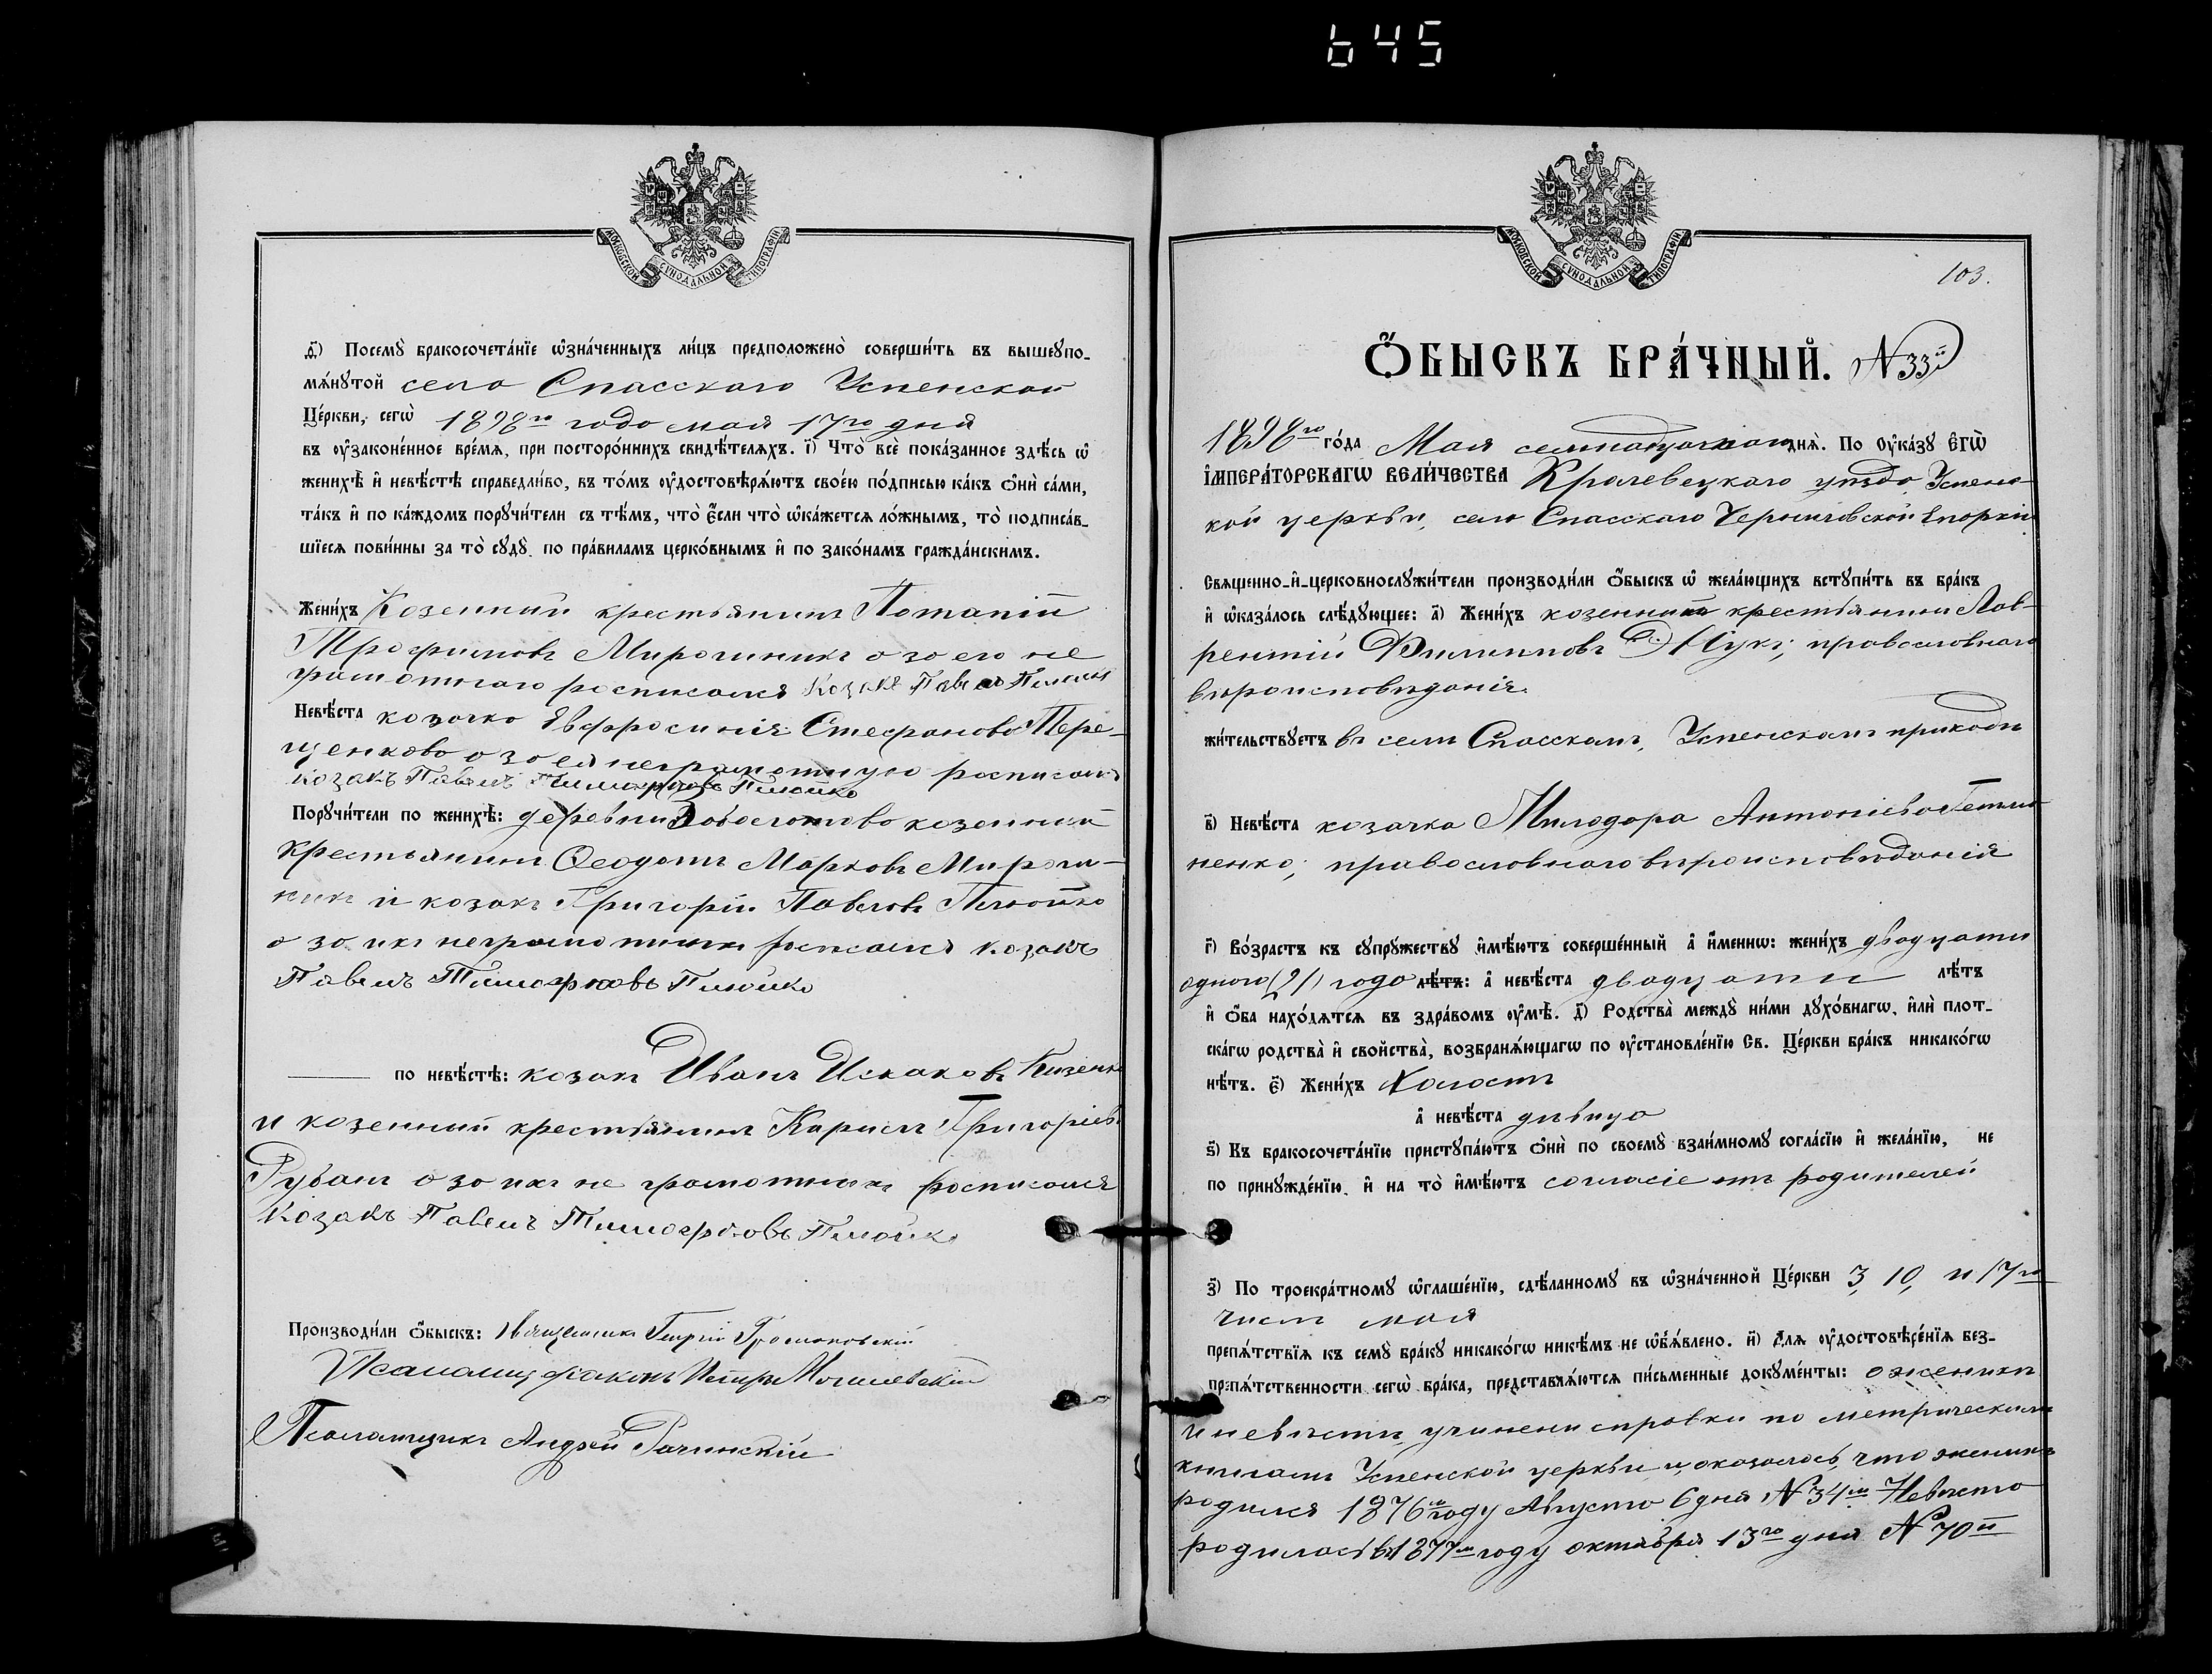 645
МОСКОВСКОЙ СУНОДАЛЬНОЙ ТИПОГРАФІИ
д҃) Посемꙋ̀ бракосочета́нїе ѡ҆зна́ченныхъ ли́цъ предположено̀ соверши́ть въ вышеꙋпо-
мѧ́нꙋтой село Спасскаго Успенской
Це́ркви, сегѡ̀ 1898го годо мая 17го дня
въ ᲂу҆законе́нное вре́мѧ, при посторо́ннихъ свидѣ́телѧхъ. і҃) Что̀ всѐ пока́занное здѣ́сь ѡ҆
женихѣ̀ и҆ невѣ́стѣ справедли́во, въ то́мъ ᲂу҆достовѣрѧ́ютъ свое́ю по́дписью ка́къ ѻ҆нѝ са́ми,
та́къ и҆ по ка́ждомъ порꙋчи́тели съ тѣ́мъ, что̀ є҆́сли что̀ ѡ҆ка́жетсѧ ло́жнымъ, то̀ подписа́в-
шїесѧ пови́нны за то̀ сꙋдꙋ̀ по пра́виламъ церко́внымъ и҆ по зако́намъ гражда́нскимъ.
Жени́хъ Козенный крестьянинъ Потапій
Трофимовъ Мирошникъ о зо его не
грамотного росписался Козакъ Павелъ
Невѣ́ста козачко Явфросинія Стефаново Пере-
щенково о зо ея неграмотную росписался
Козакъ Павелъ Тимофѣевъ
Порꙋчи́тели по женихѣ̀: деревни козенный
крестьянинъ Ѳеодотъ Марковъ Мирош-
никъ и козакъ Григорій Павловъ
о зо ихъ неграмотныхъ росписался козакъ
Павелъ Тимофѣевъ
по невѣ́стѣ: козакъ Иванъ Исааковъ
и козенный крестьянинъ Карпъ Григоріевъ
Рубанъ о зо ихъ не грамотныхъ росписался
Козакъ Павелъ Тимофѣевъ
Производи́ли ѻ҆́быскъ: Священникъ Георгій
діаконъ Петръ Могилевскій
Псаломщикъ Андрей Рачинскій
МОСКОВСКОЙ СУНОДАЛЬНОЙ ТИПОГРАФІИ
103.
Ѻ҆́БЫСКЪ БРА́ЧНЫЙ. N 33й
1898го го́да Мая семнадцатаго днѧ̀. По ᲂу҆ка́зꙋ Є҆гѡ̀
І҆мпера́торскагѡ вели́чества Кролевецкаго уѣздо, Успенс-
кой церкви, село Спасскаго Черниговской Епархіи
Свѧщенно-и҆-церковнослꙋжи́тели производи́ли ѻ҆́быскъ ѡ҆ жела́ющихъ встꙋпи́ть въ бра́къ
и҆ ѡ҆каза́лось слѣ́дꙋющее: а҃) Жени́хъ козенный крестьянинъ Лав-
рентій Филипповъ Жукъ; православного
вѣроисповѣданія.
жи́тельствꙋетъ въ селѣ Спасскомъ, Успенскомъ приходѣ
в҃) Невѣ́ста козачка Милодора Антоніево Гетма-
ненко; православного вѣроисповѣданія
г҃) Во́зрастъ къ сꙋпрꙋ́жествꙋ и҆мѣ́ютъ соверше́нный а҆ и҆́меннѡ: жени́хъ двадцати
одного (21) года лѣ́тъ: а҆ невѣ́ста двадцати лѣ́тъ
и҆ ѻ҆́ба нахо́дѧтсѧ въ здра́вомъ ᲂу҆мѣ̀. д҃) Родства̀ междꙋ̀ ни́ми дꙋхо́внагѡ, и҆лѝ плот-
ска́гѡ родства̀ и҆ свойства̀, возбранѧ́ющагѡ по ᲂу҆становле́нїю Св. Це́ркви бра́къ никако́гѡ
нѣ́тъ. є҃) Жени́хъ Холостъ
а҆ невѣ́ста дѣвица
ѕ҃) Къ бракосочета́нїю пристꙋпа́ютъ ѻ҆нѝ по своемꙋ̀ взаи́мномꙋ согла́сїю и҆ жела́нїю, не
по принꙋжде́нїю, и҆ на то̀ и҆мѣ́ютъ согласіе отъ родителей
з҃) По троекра́тномꙋ ѡ҆глаше́нїю, сдѣ́ланномꙋ въ ѡ҆зна́ченной Це́ркви 3, 10, и 17го
числъ мая
препѧ́тствїѧ къ семꙋ̀ бра́кꙋ никако́гѡ никѣ́мъ не ѡ҆б̾ѧ́влено. и҃) Длѧ ᲂу҆достовѣре́нїѧ без-
препѧ́тственности сегѡ̀ бра́ка, представлѧ́ютсѧ пи́сьменные докꙋме́нты: о женихѣ
и невѣстѣ учинены справки по метрическимъ
книгамъ Успенской церкви и оказалось, что женихъ
родился 1876м году Августа 6 дня N 34м Невѣсто
родилась въ 1877м году октября 13го дня N 70й